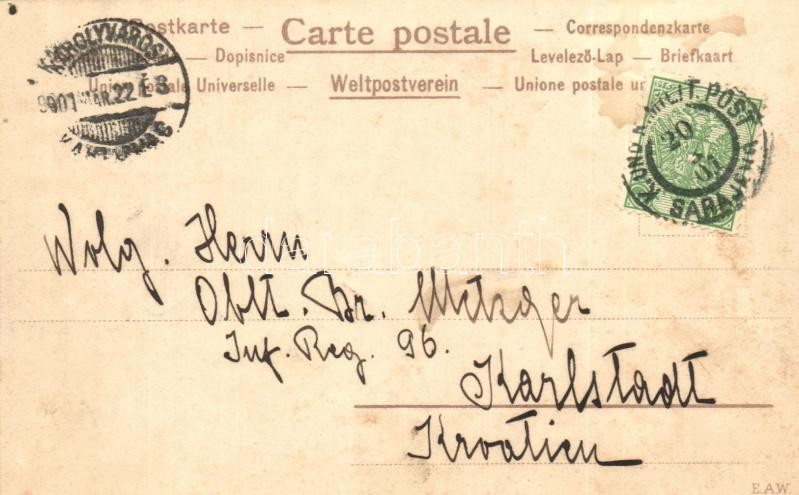 Postkarte — Carte postale — Correspondenzkarte
— Dopisnice Levelező-Lap — Briefkaart
Union postale Universelle — Weltpostverein — Unione postale un
KÁROLYVÁROS
901 MAR. 22
K. UND K. MILIT. POST
20
SARAJEVO
Wolg. Herrn
Oblt. Dr. Metzger
Inf. Reg. 96.
Karlstadt
Kroatien
darabanth
E.A.W.